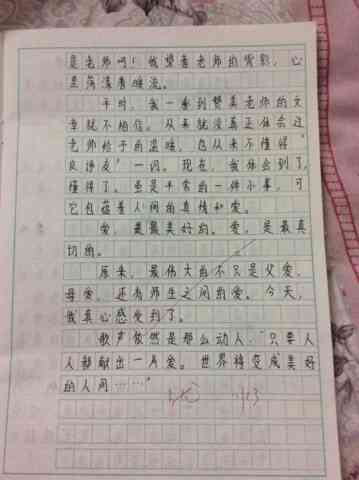 是老师吗！我望着老师的背影，心
里荡漾着暖流。
平时，我一看到赞美老师的文
章就不相信。从来就没真正体会过
老师给予的温暖，也从来不懂得“
良师友”一词。现在，我体会到了，
懂得了。虽是平常的一件小事，可
它包蕴着人间的真情和爱。
爱，是最美好的。爱，是最真
切的。
原来，最伟大的不只是父爱、
母爱，还有师生之间的爱。今天，
我真心感受到了。
歌声依然是那么动人，“只要人
人都献出一片爱。世界将变成美好
的人间……”